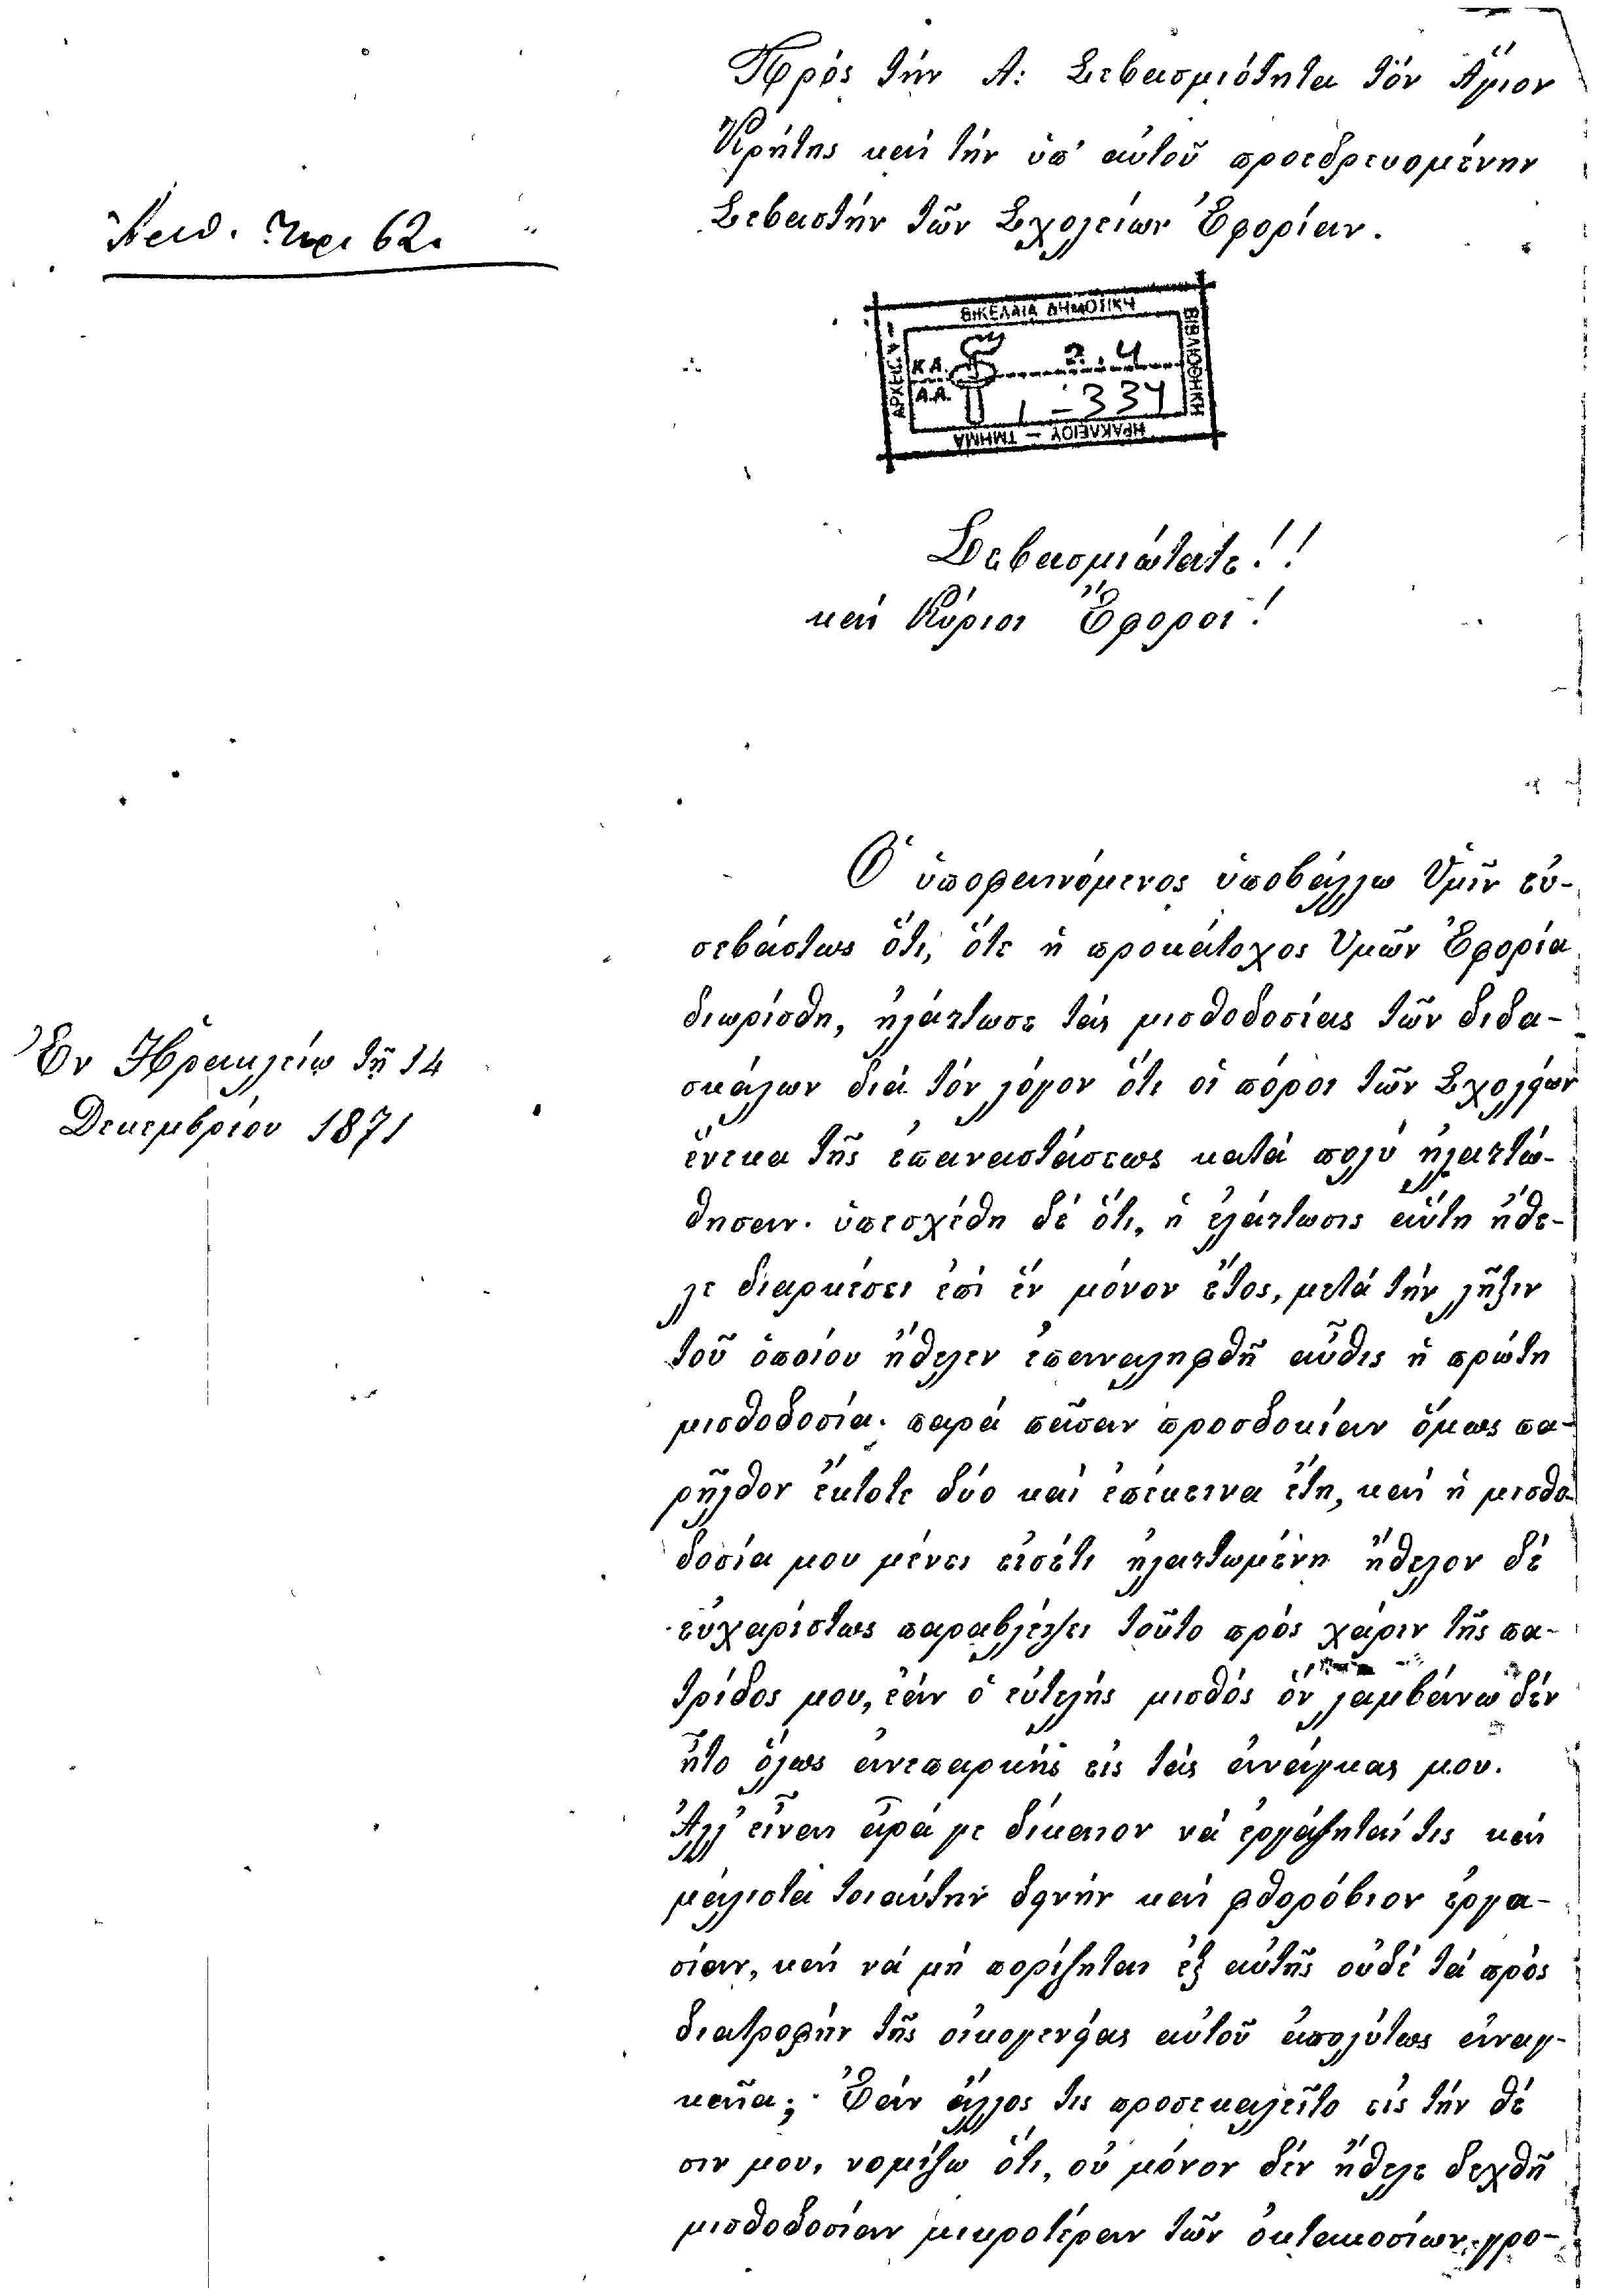 Πρός τήν Α: Σεβασμιότητα τόν Ἅγιον
Κρήτης καί τήν ὑπ' αὐτοῦ προεδρευομένην
Σεβαστήν τῶν Σχολείων Ἐφορίαν.
62.
ΒΙΚΕΛΑΙΑ ΔΗΜΟΤΙΚΗ
ΒΙΒΛΙΟΘΗΚΗ
ΗΡΑΚΛΕΙΟΥ — ΤΜΗΜΑ
Κ.Α. 2.4
Α.Α. 1-334
Σεβασμιώτατε!!
καί Κύριοι Ἔφοροι!
Ὁ ὑποφαινόμενος ὑποβάλλω Ὑμῖν εὐ-
σεβάστως ὅτι, ὅτε ἡ προκάτοχος Ὑμῶν Ἐφορία
διωρίσθη, ἠλάττωσε τάς μισθοδοσίας τῶν διδα-
σκάλων διά τόν λόγον ὅτι οἱ πόροι τῶν Σχολείων
ἕνεκα τῆς ἐπαναστάσεως κατά πολύ ἠλαττώ-
θησαν· ὑπεσχέθη δέ ὅτι, ἡ ἐλάττωσις αὕτη ἤθε-
λε διαρκέσει ἐπί ἕν μόνον ἔτος, μετά τήν λῆξιν
τοῦ ὁποίου ἤθελεν ἐπαναληφθῆ αὖθις ἡ πρώτη
μισθοδοσία· παρά πᾶσαν προσδοκίαν ὅμως πα-
ρῆλθον ἔκτοτε δύο καί ἐπέκεινα ἔτη, καί ἡ μισθο-
δοσία μου μένει εἰσέτι ἠλαττωμένη ἤθελον δέ
εὐχαρίστως παραβλέψει τοῦτο πρός χάριν τῆς πα-
τρίδος μου, ἐάν ὁ εὐτελής μισθός ὅν λαμβάνω δέν
ἦτο ὅλως ἀνεπαρκής εἰς τάς ἀνάγκας μου.
Ἀλλ' εἶναι ἆρά γε δίκαιον νά ἐργάζηταί τις καί
μάλιστα τοιαύτην δεινήν καί φθορόβιον ἐργα-
σίαν, καί νά μή πορίζηται ἐξ αὐτῆς οὐδέ τά πρός
διατροφήν τῆς οἰκογενείας αὐτοῦ ἀπολύτως ἀναγ-
καῖα; Ἐάν ἄλλος τις προσεκαλεῖτο εἰς τήν θέ
σιν μου, νομίζω ὅτι, οὐ μόνον δέν ἤθελε δεχθῆ
μισθοδοσίαν μικροτέραν τῶν ὀκτακοσίων γρο-
Ἐν Ἡρακλείῳ τῇ 14
Δεκεμβρίου 1871